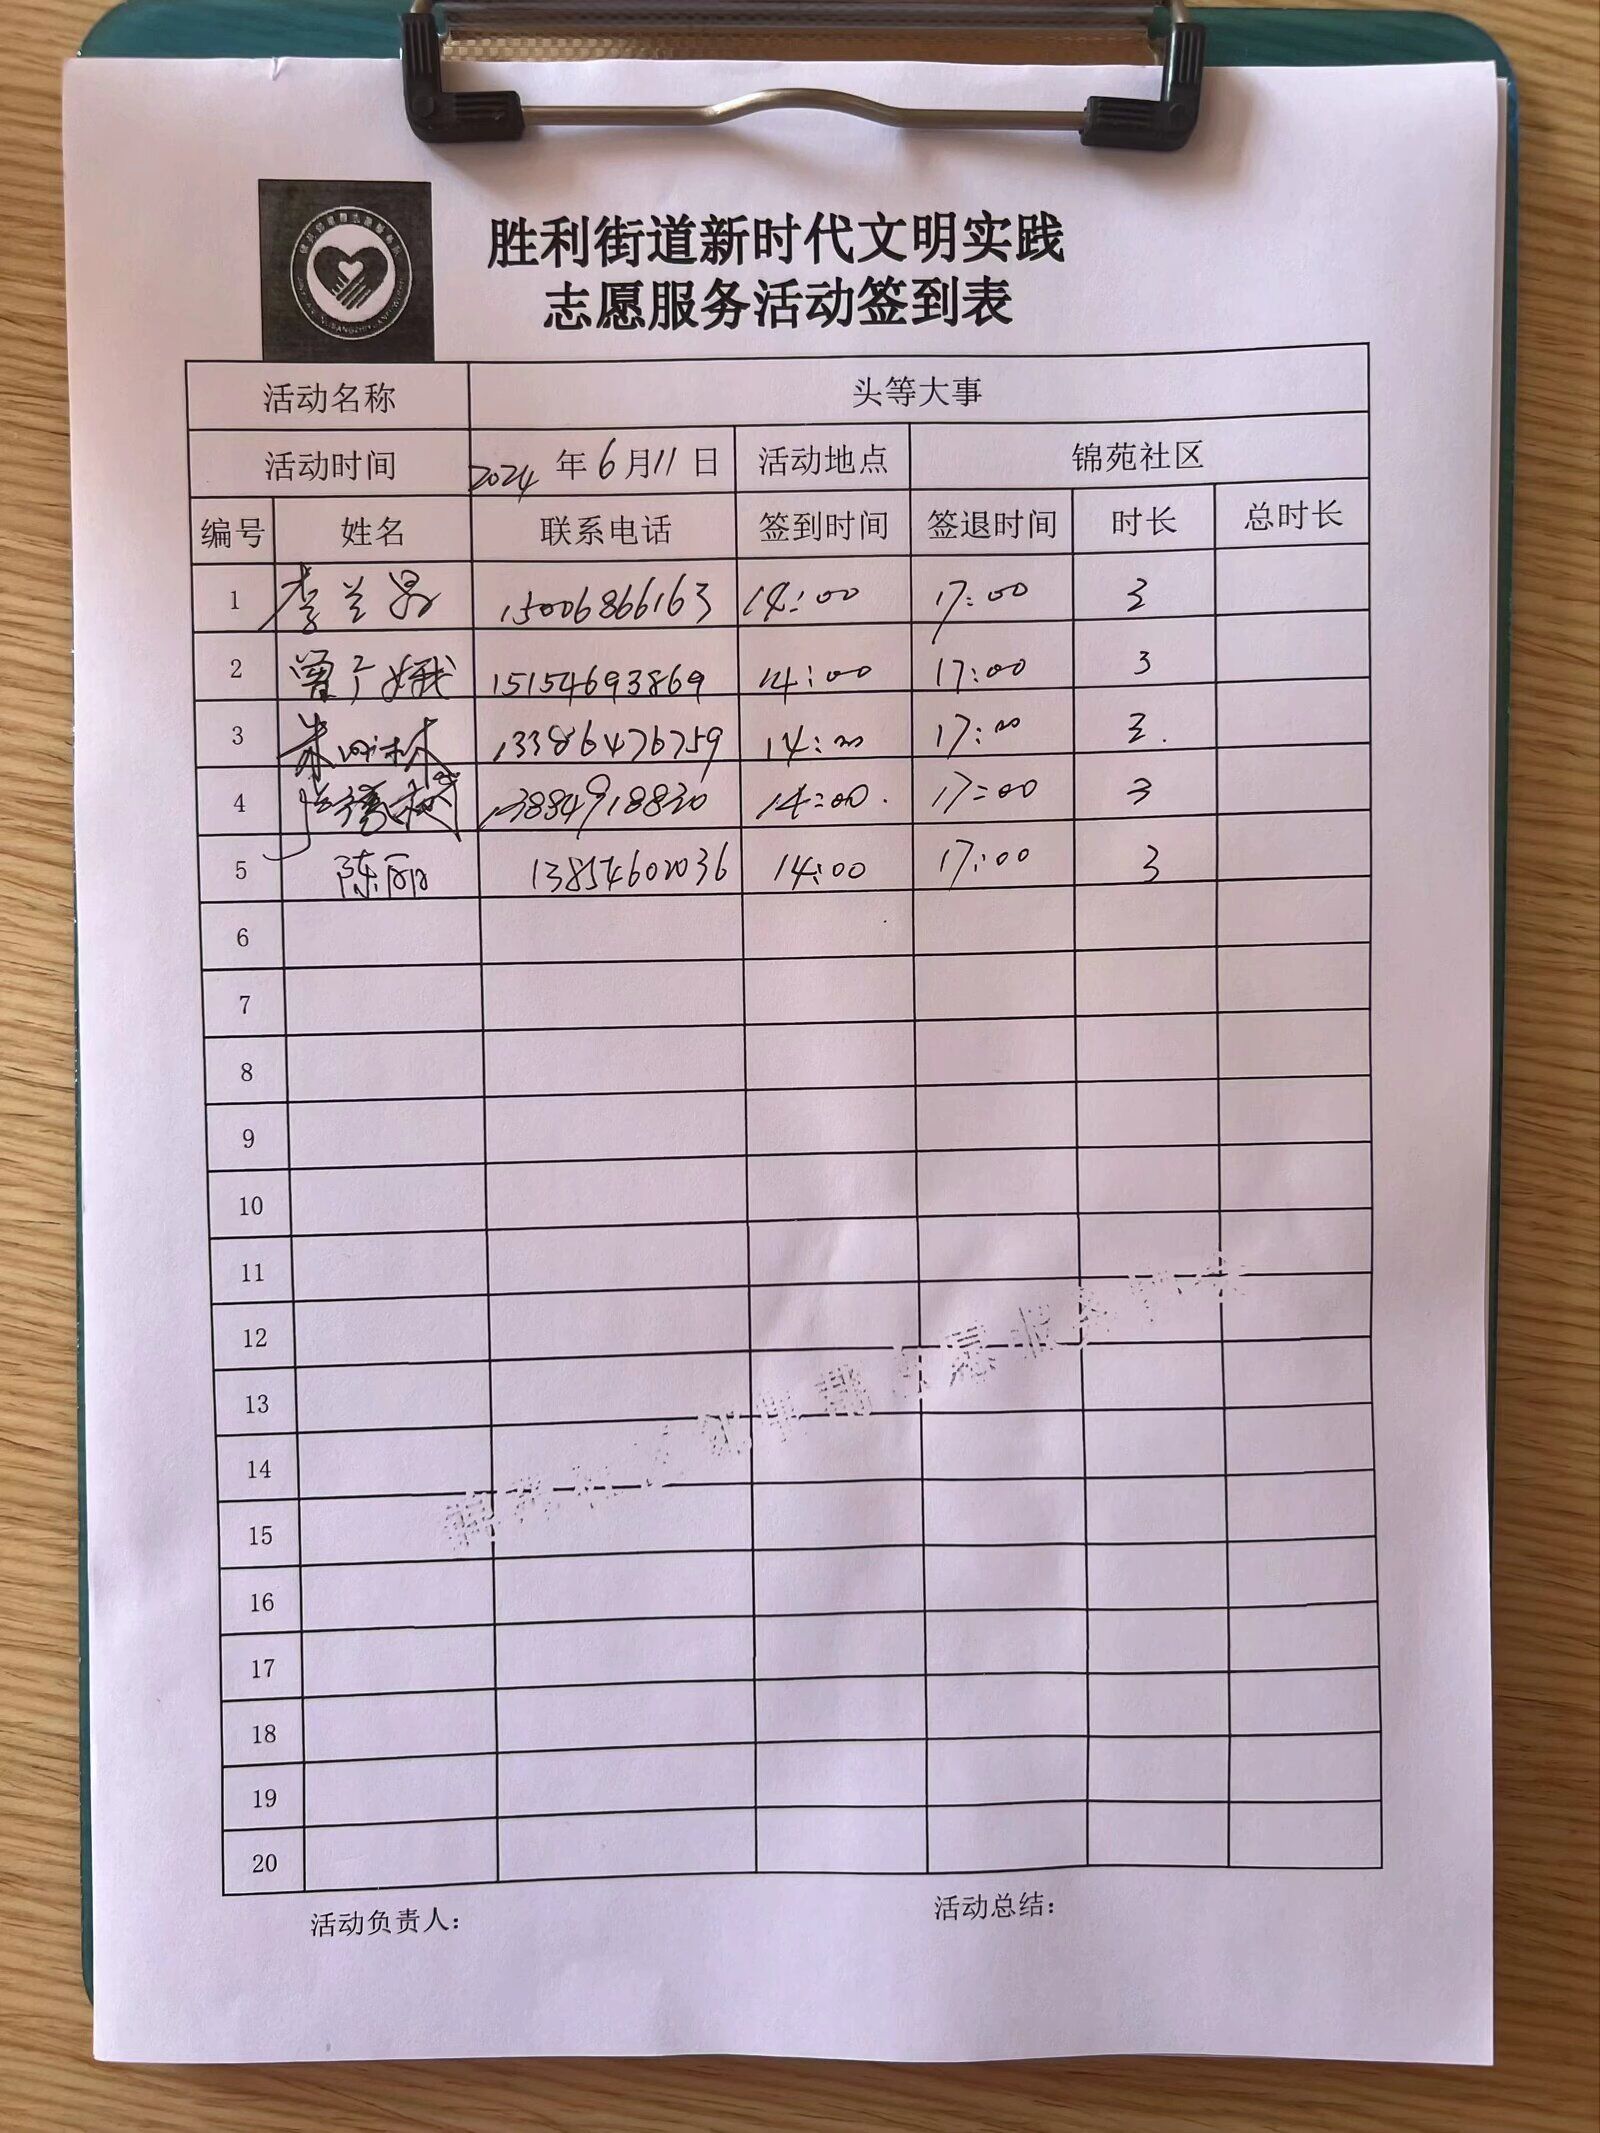 胜利街道新时代文明实践
志愿服务活动签到表
活动名称 头等大事
活动时间 2024年6月11日 活动地点 锦苑社区
编号 姓名 联系电话 签到时间 签退时间 时长 总时长
1 李兰 15006866163 14:00 17:00 3
2 曾广娥 15154693869 14:00 17:00 3
3 朱林 13386476759 14:00 17:00 3
4 13884918830 14:00 17:00 3
5 陈丽 13854602036 14:00 17:00 3
6
7
8
9
10
11
12
13
14
15
16
17
18
19
20
活动负责人： 活动总结：